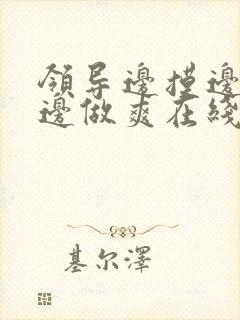 領导邊摸邊
邊做爽在綫
基尔澤